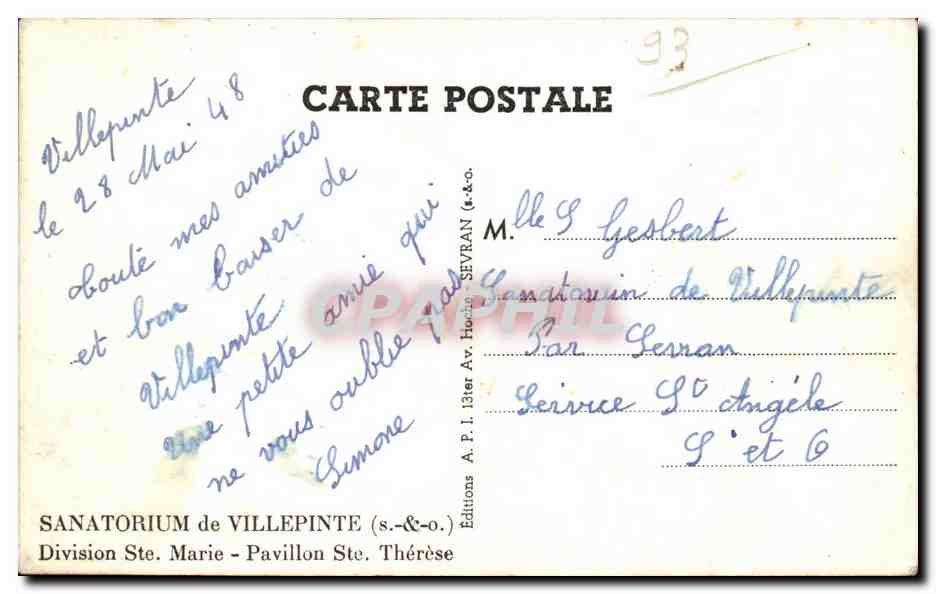 93
CARTE POSTALE
Villepinte
le 28 Mai 48
toute mes amitiés
et bon baiser de
Villepinte
une petite amie qui
ne vous oublie pas
Simone
Mlle S Gesbert
Sanatorium de Villepinte
Par Sevran
Service St Angéle
S et O
Editions A. P. I. 13ter Av. Hoche SEVRAN (s.-&-o.
CPAPHIL
SANATORIUM de VILLEPINTE (s.-&-o.)
Division Ste. Marie - Pavillon Ste. Thérèse